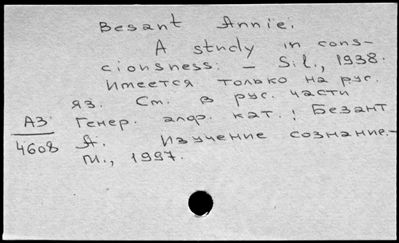 Besant Annie.
A study in cons-
cionsness. - S.l., 1938.
Имеется только на рус.
яз. См. в рус. части
АЗ Генер. алфав. кат.: Безант
4608 А. Изучение сознание.-
М., 1997.